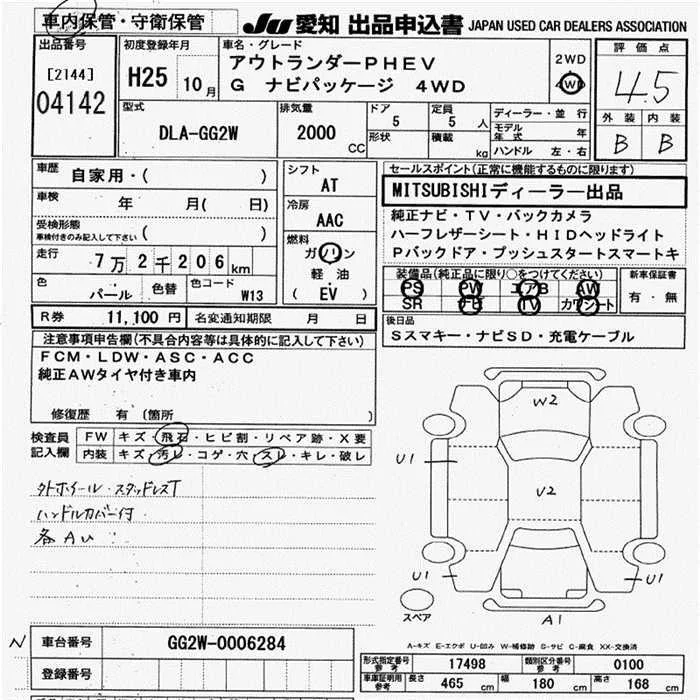 車内保管・守衛保管
JU 愛知 出品申込書 JAPAN USED CAR DEALERS ASSOCIATION
出品番号
[2144]
04142
初度登録年月
H25 10月
車名・グレード
アウトランダーPHEV
G ナビパッケージ 4WD
2WD
4WD
評価点
4.5
外装 内装
B B
型式
DLA-GG2W
排気量
2000
CC
ドア
5
定員
5 人
形状
積載
kg
ディーラー・並行
モデル年式 年
ハンドル 左・右
車歴
自家用・( )
車検
年 月( 日)
受検形態
車検付きのみ記入して下さい ( )
走行
7万2千206km
色
パール
色替
色コード
W13
シフト
AT
冷房
AAC
燃料
ガソリン
軽油
( EV )
セールスポイント(正常に機能するものに限ります)
MITSUBISHIディーラー出品
純正ナビ・TV・バックカメラ
ハーフレザーシート・HIDヘッドライト
Pバックドア・プッシュスタートスマートキ
装備品(純正品に限り○をつけてください)
PS PW エアB AW
SR ナビ TV カワシート
新車保証書
有・無
R券 11,100 円
名変通知期限 月 日
後日品
Sスマキー・ナビSD・充電ケーブル
注意事項申告欄(不具合内容等は具体的に記入して下さい)
FCM・LDW・ASC・ACC
純正AWタイヤ付き車内
修復歴 有 (箇所 )
検査員記入欄
FW キズ・飛石・ヒビ割・リペア跡・X要
内装 キズ・汚レ・コゲ・穴・スレ・キレ・破レ
外ホイール・スタッドレスT
ハンドルカバー付
各AU
W2
U1
U2
U1
U1
A1
スペア
N
車台番号
GG2W-0006284
登録番号
A-キズ E-エクボ U-凹み W-補修跡 S-サビ C-腐食 XX-交換済
形式指定番号 参考 17498
類別区分番号 参考 0100
車庫証明用 参考 長さ 465 cm 幅 180 cm 高さ 168 cm